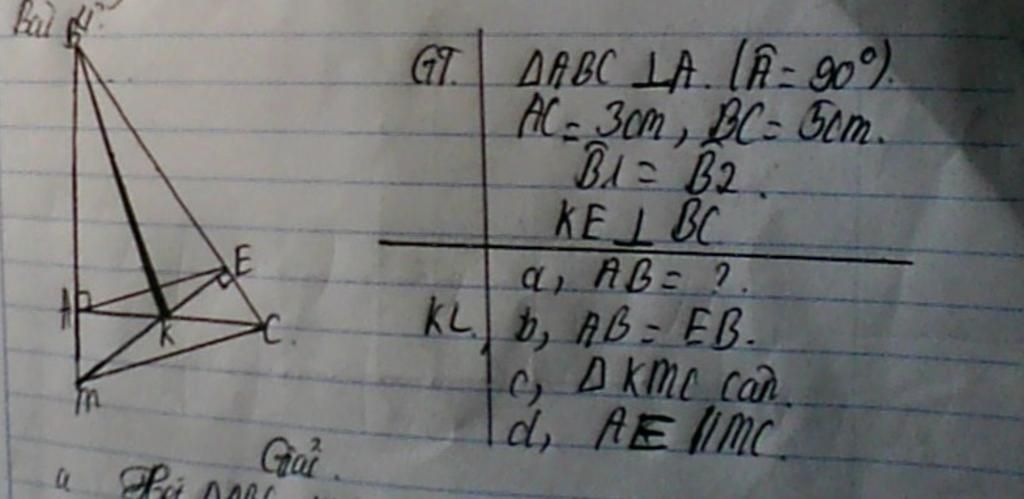 Bài 4:
B
E
A
K
C
M
GT. ΔABC ⊥A. (Â = 90°).
AC = 3cm, BC = 5cm.
B̂1 = B̂2.
KE ⊥ BC
a, AB = ?.
KL, b, AB = EB.
c, Δ KMC cân.
d, AE // MC.
Giải.
a ΔABC